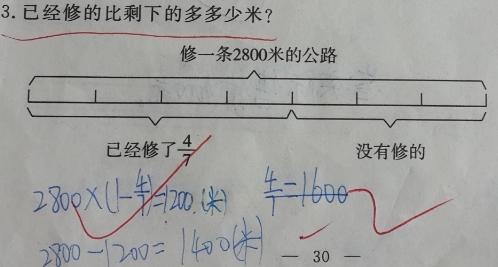 3.已经修的比剩下的多多少米?
修一条2800米的公路
已经修了4/7 没有修的
2800×(1-4/7)=1200.(米) 4/7=1600
2800-1200=1400(米)
— 30 —